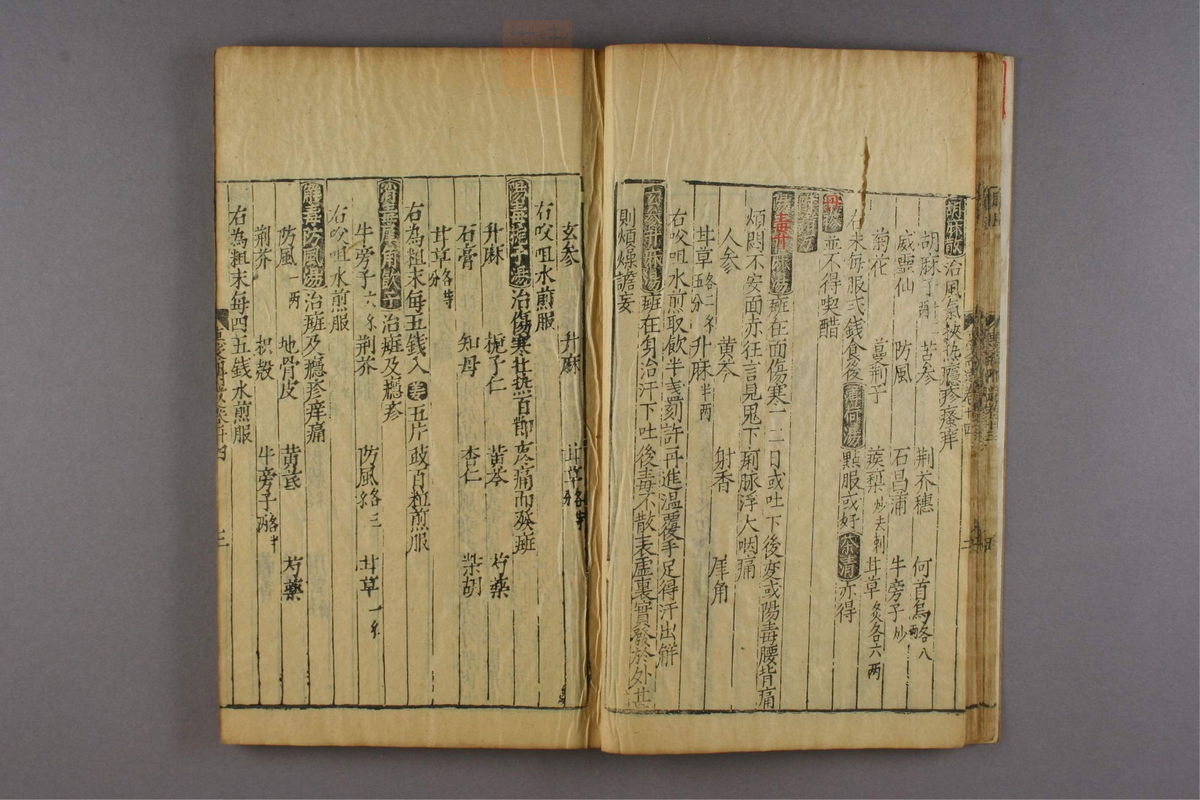 胡麻散 治風氣挾熱癮疹瘙痒
胡麻子 苦参 荆芥穗 何首烏各八兩
威靈仙 防風 石昌蒲 牛旁子炒
菊花 蔓荆子 蒺䔧炒去刺 甘草炙各六兩
右末每服弍錢食後薄荷湯點服或好茶清亦得
並不得喫醋
陽毒升麻湯 班在面傷寒一二日或吐下後变或陽毒腰背痛
煩悶不安面赤狂言見鬼下痢脉浮大咽痛
人参 黄芩 射香 犀角
甘草各二分 升麻半兩
右㕮咀水煎取飲半盞刻許再進温覆手足得汗出解
玄参升麻湯 班在身治汗下吐後毒不散表虚裏實發於外甚
則煩燥譫妄
玄参 升麻 甘草各等分
右㕮咀水煎服
陽毒梔子湯 治傷寒壯热百節疼痛而發班
升麻 梔子仁 黄芩 芍藥
石膏 知母 杏仁 柴胡
甘草各等分
右為粗末每五錢入姜五片豉百粒煎服
消毒犀角飲子 治班及癮疹
牛旁子六分 荆芥 防風各三分 甘草一分
右㕮咀水煎服
解毒防風湯 治班及癮疹痒痛
防風一兩 地骨皮 黄芪 芍藥
荆芥 枳殻 牛旁子各半兩
右為粗末每四五錢水煎服
三